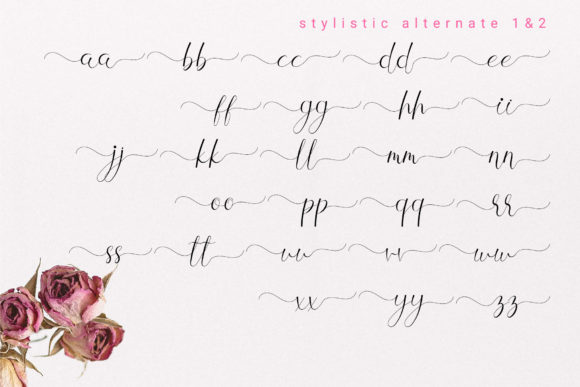 stylistic alternate 1&2
aa bb cc dd ee
ff gg hh ii
jj kk ll mm nn
oo pp qq rr
ss tt uu vv ww
xx yy zz